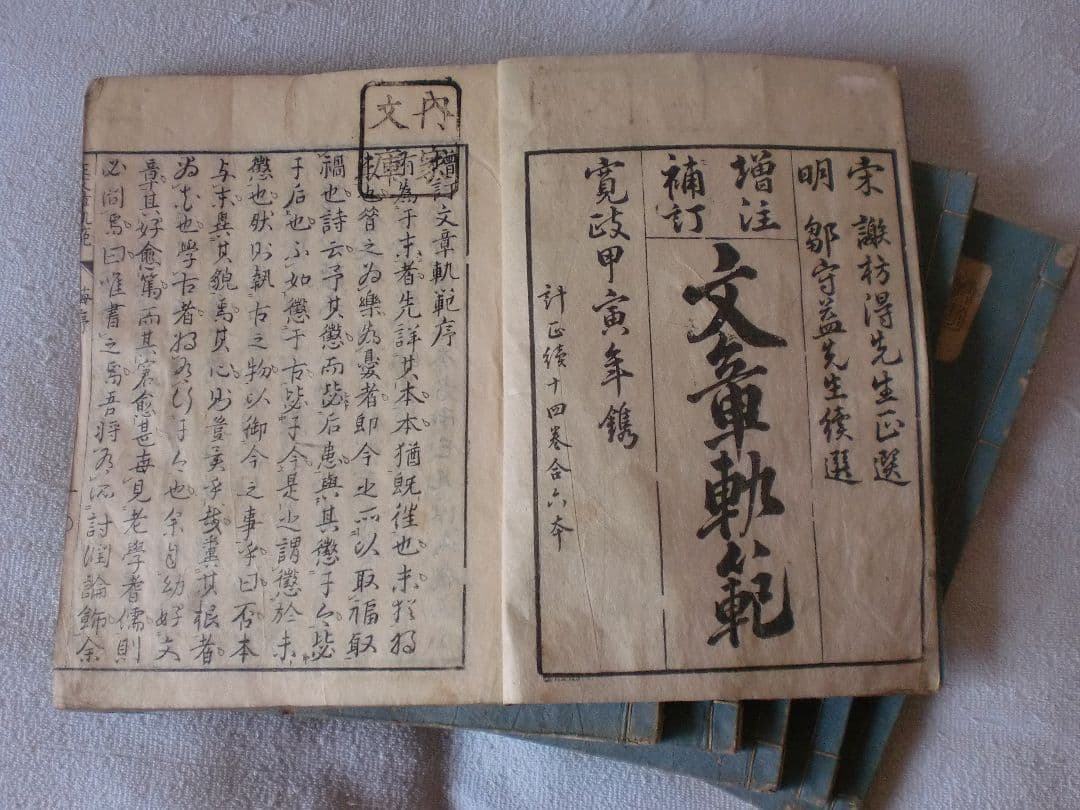 宋 謝枋得先生正選
明 鄒守益先生續選
增注
補訂
文章軌範
寛政甲寅年鐫
計正續十四巻合六本
内
文庫
增訂文章軌範序
有為于末者先詳其本本猶既徃也末猶将
来也昔之為樂為憂者即今之所以取福取
禍也詩云予其懲而毖后患與其懲于今毖
于后也不如懲于古毖于今是之謂懲於未
懲也然則執古之物以御今之事乎曰否本
与末異其貌焉其心則豈異乎哉冀其根者
為花也學古者将為行于今也余自幼好文
章其好愈篤而其窘愈甚毎見老學耆儒則
必問焉曰唯書之焉吾将為汝討潤論飾余